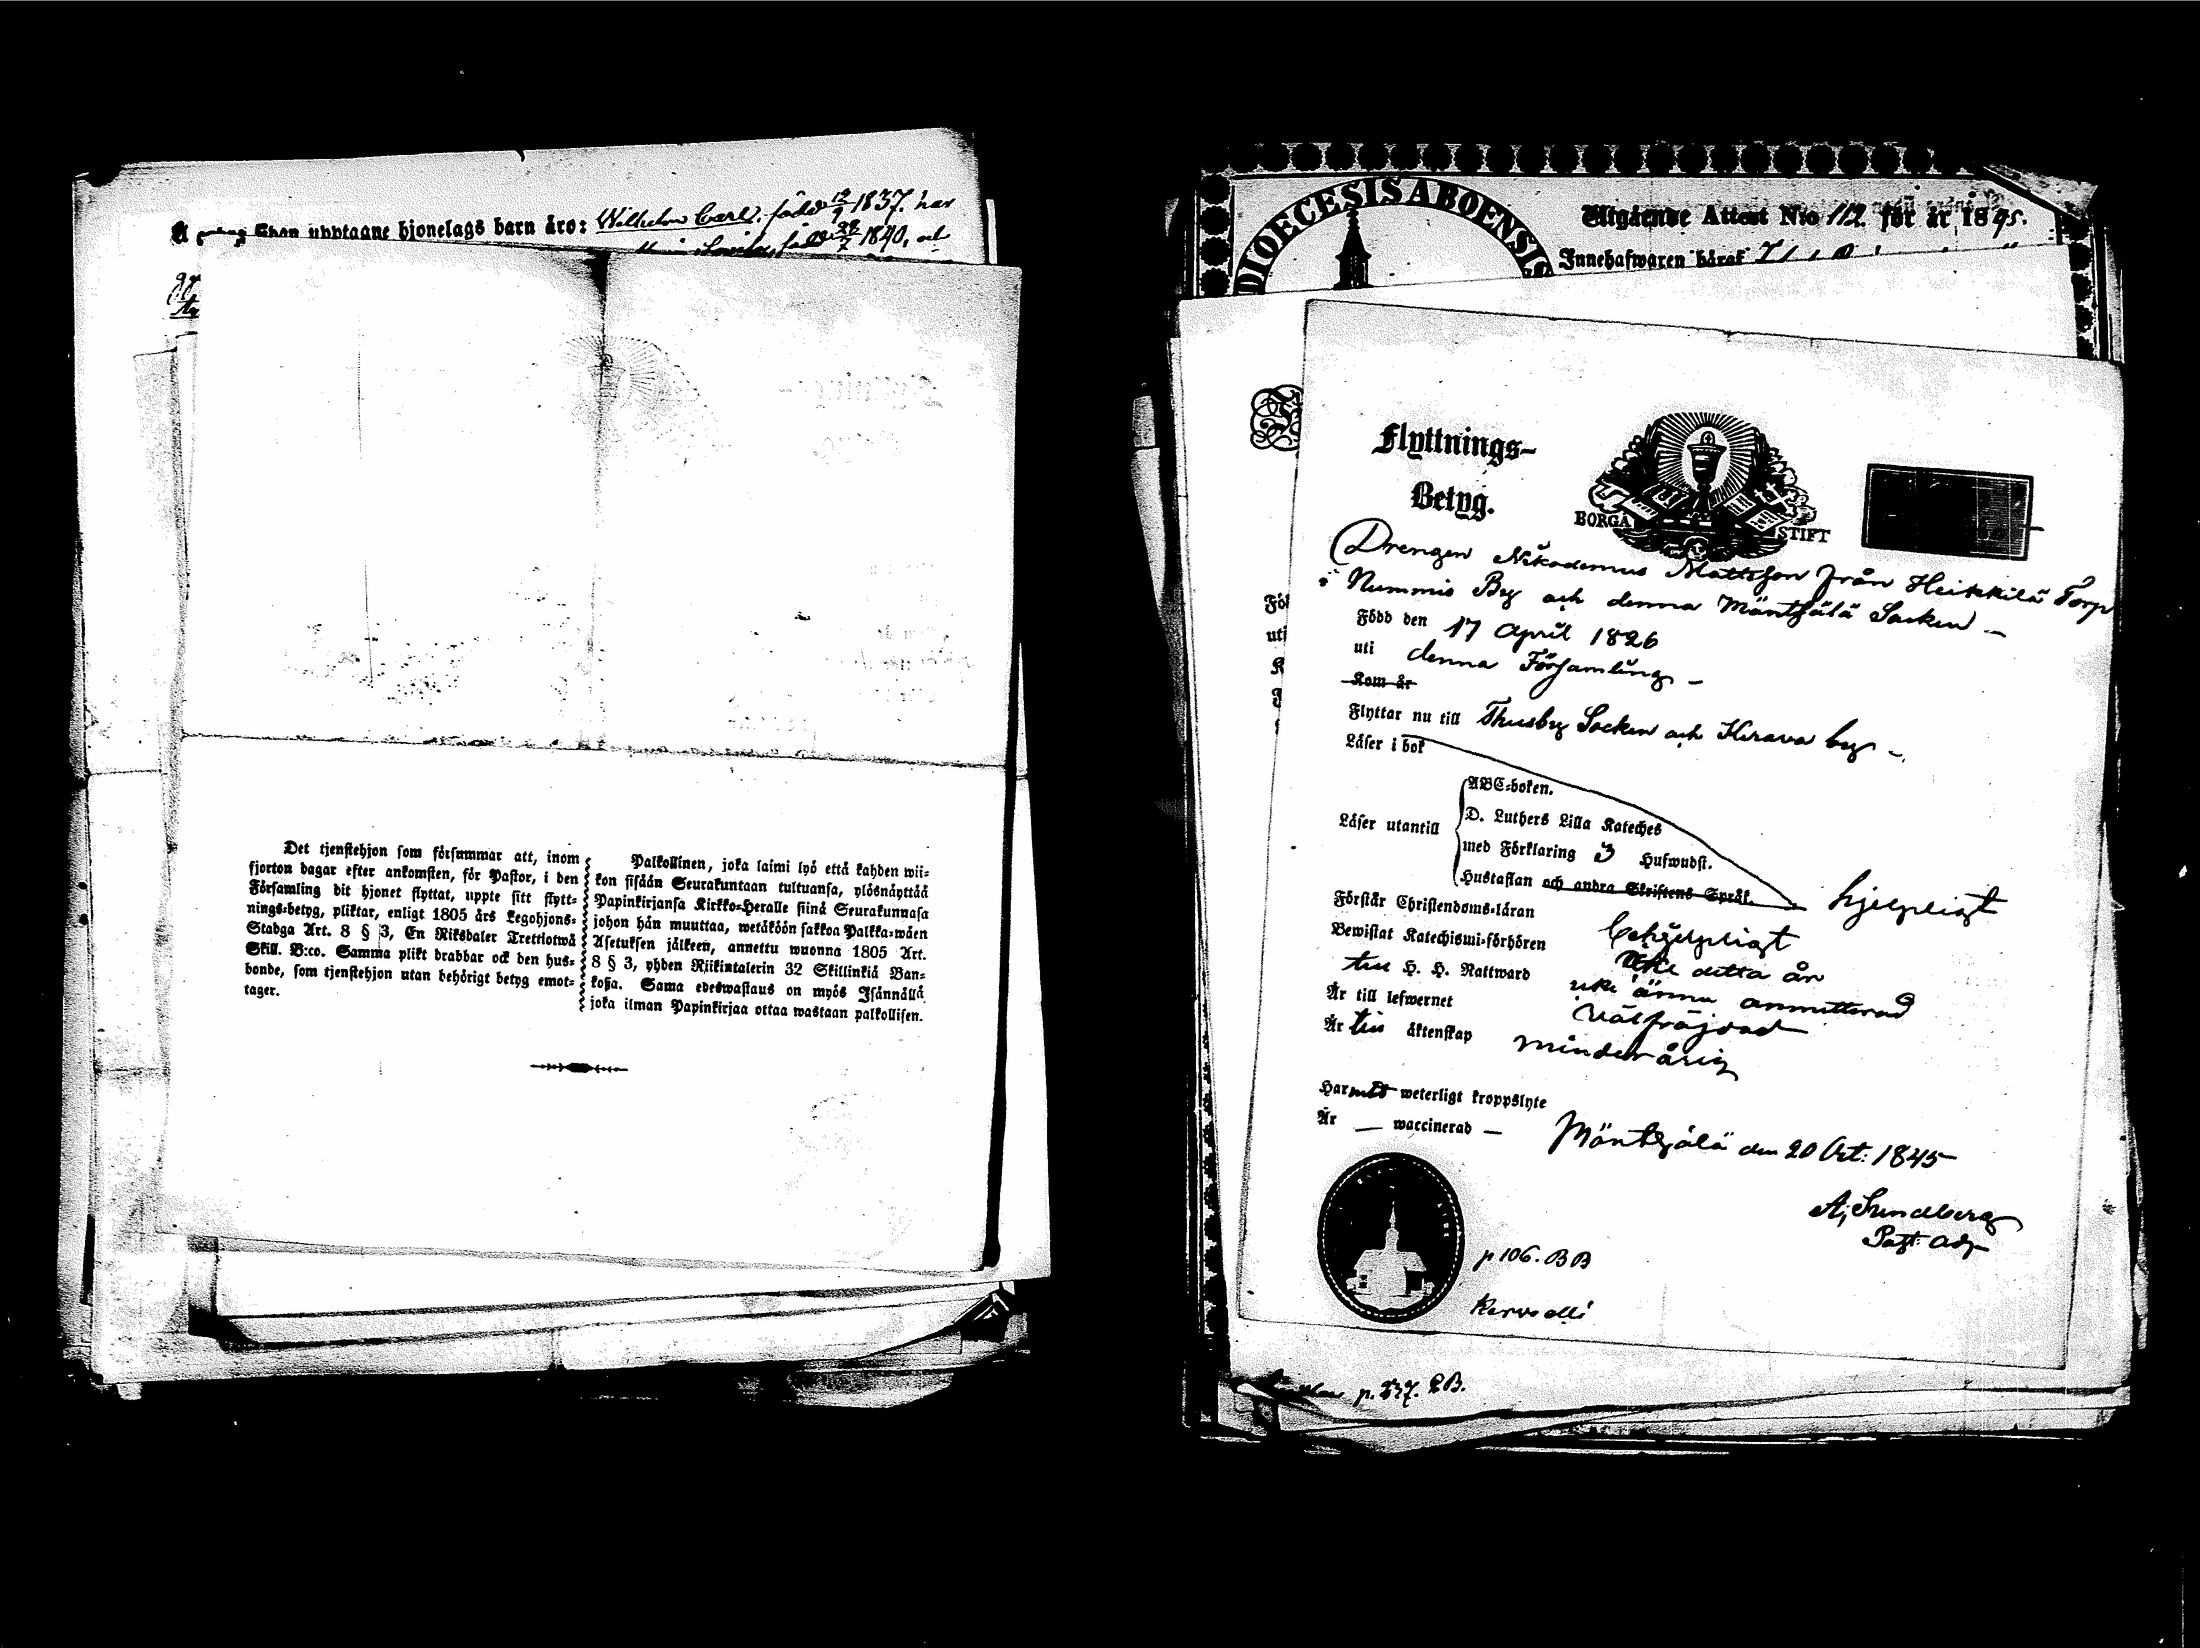 upptagne hjonelags barn äro: Wilhelm Carl, född 12/9 1837. har
född 28/7 1840, och
Det tjenstehjon som försummar att, inom
fjorton dagar efter ankomsten, för Pastor, i den
Församling dit hjonet flyttat, uppte sitt flytt-
nings-betyg, pliktar, enligt 1805 års Legohjons-
Stadga Art. 8 § 3, En Riksdaler Trettiotwå
Skill. B:co. Samma plikt drabbar ock den hus-
bonde, som tjenstehjon utan behörigt betyg emot-
tager.
Palkollinen, joka laimi lyö että kahden wii-
kon sisään Seurakuntaan tultuansa, ylösnäyttää
Papinkirjansa Kirkko-Heralle siinä Seurakunnasa
johon hän muuttaa, wetäköön sakkoa Palkka-wäen
Asetuksen jälkeen, annettu wuonna 1805 Art.
8 § 3, yhden Riikintalerin 32 Skillinkiä Ban-
koßa. Sama edeswastaus on myös Isännällä
joka ilman Papinkirjaa ottaa wastaan palkollisen.
DIOECESIS ABOENSIS
Utgående Attest N:o 112 för år 1845.
Innehafwaren häraf
Flyttnings-
Betyg.
BORGÅ STIFT
Drengen Nikodemus Mattsson från Heikkilä Torp
i Nummis By och denna Mäntsälä Socken –
Född den 17 April 1826
uti denna Församling –
Kom år
Flyttar nu till Thusby Socken och Kerava by –
Läser i bok
Läser utantill
ABC-boken.
D. Luthers Lilla Kateches
med Förklaring 3 Hufwudst.
Hustaflan och andra Skriftens Språk.
hjelpligt
Förstår Christendoms-läran behjelpligt
Bewistat Katechismi-förhören icke detta år
till H. H. Nattward icke ännu admitterad
Är till lefwernet välfräjdad
Är till äktenskap minderårig
Har intet weterligt kroppslyte
Är — waccinerad —
Mäntsälä den 20 Oct: 1845
A. Sundberg
Past: adj.
p 106. BB
p. 237. BB.